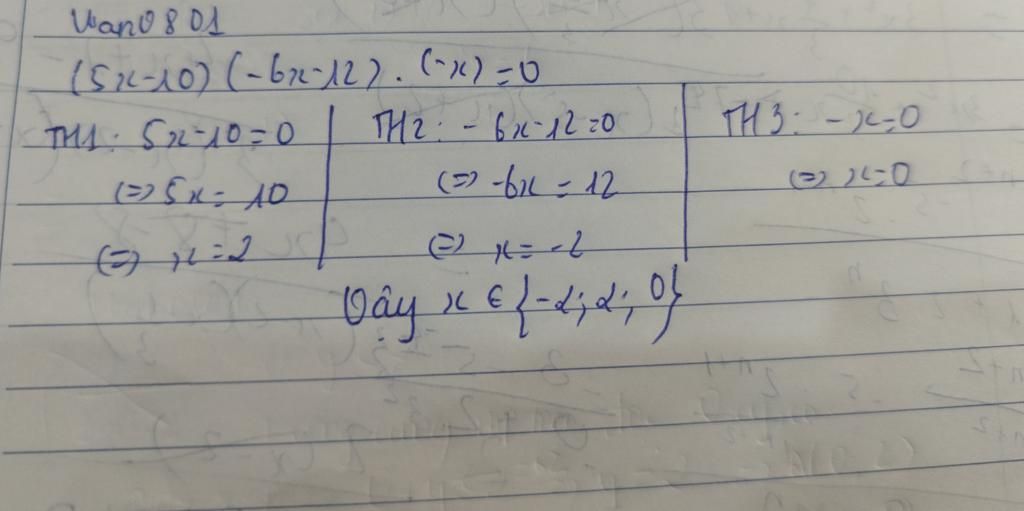 Uan0801
(5x-10)(-6x-12).(-x)=0
TH1: 5x-10=0
(=) 5x= 10
(=) x=2
TH2: - 6x-12=0
(=) -6x = 12
(=) x= -2
TH3: -x=0
(=) x=0
Vậy x ∈ {-2; 2; 0}